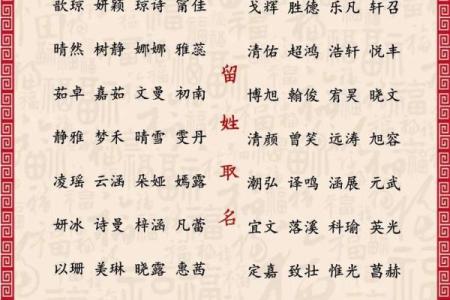 歆琼 妍颖 琼诗 甯佳
晴然 树静 娜娜 雅蕊
茹卓 嘉茹 文曼 初南
静雅 梦禾 晴雪 雯丹
凌瑶 云涵 朵娅 嫣露
妍冰 诗曼 梓涵 凡蕾
以珊 美琳 晓露 惠茜
留姓取名
戈辉 胜德 乐凡 轩召
清佑 超鸿 浩轩 悦丰
博旭 翰俊 宥昊 晓文
清颜 曾笑 远涛 旭容
潮弘 译鸣 涵展 元武
宜文 落溪 科瑜 英光
定嘉 致壮 惟光 菖赫